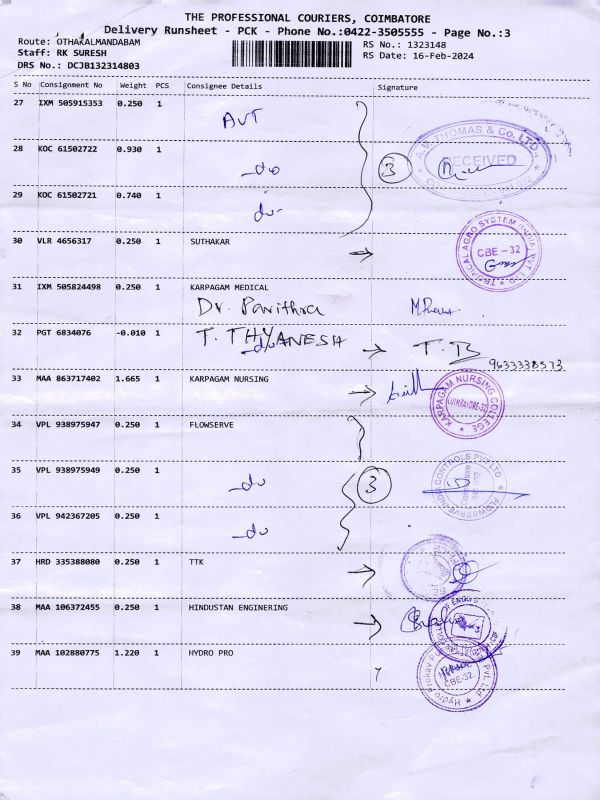 THE PROFESSIONAL COURIERS, COIMBATORE
Delivery Runsheet - PCK - Phone No.:0422-3505555 - Page No.:3
Route: OTHAKALMANDABAM
RS No.: 1323148
Staff: RK SURESH
RS Date: 16-Feb-2024
DRS No.: DCJB132314803
S No Consignment No Weight PCS Consignee Details Signature
27 IXM 505915353 0.250 1 AVT
28 KOC 61502722 0.930 1 -do
3
A.V. THOMAS & Co. LTD.,
RECEIVED
29 KOC 61502721 0.740 1 do-
30 VLR 4656317 0.250 1 SUTHAKAR
TROPICAL AGRO SYSTEM INDIA PVT. LTD.
CBE - 32
31 IXM 505824498 0.250 1 KARPAGAM MEDICAL
Dr. Pavithra
32 PGT 6834076 -0.010 1 T. THYANESH
-do
T. B
9633338573
33 MAA 863717402 1.665 1 KARPAGAM NURSING
KARPAGAM NURSING COLLEGE
COIMBATORE-32
34 VPL 938975947 0.250 1 FLOWSERVE
35 VPL 938975949 0.250 1 -do
3
CONTROLS PVT LTD
Coimbatore
36 VPL 942367205 0.250 1 -do
37 HRD 335388080 0.250 1 TTK
38 MAA 106372455 0.250 1 HINDUSTAN ENGINERING
39 MAA 102880775 1.220 1 HYDRO PRO
Hydro Prokav Pvt. Ltd
CBE-32